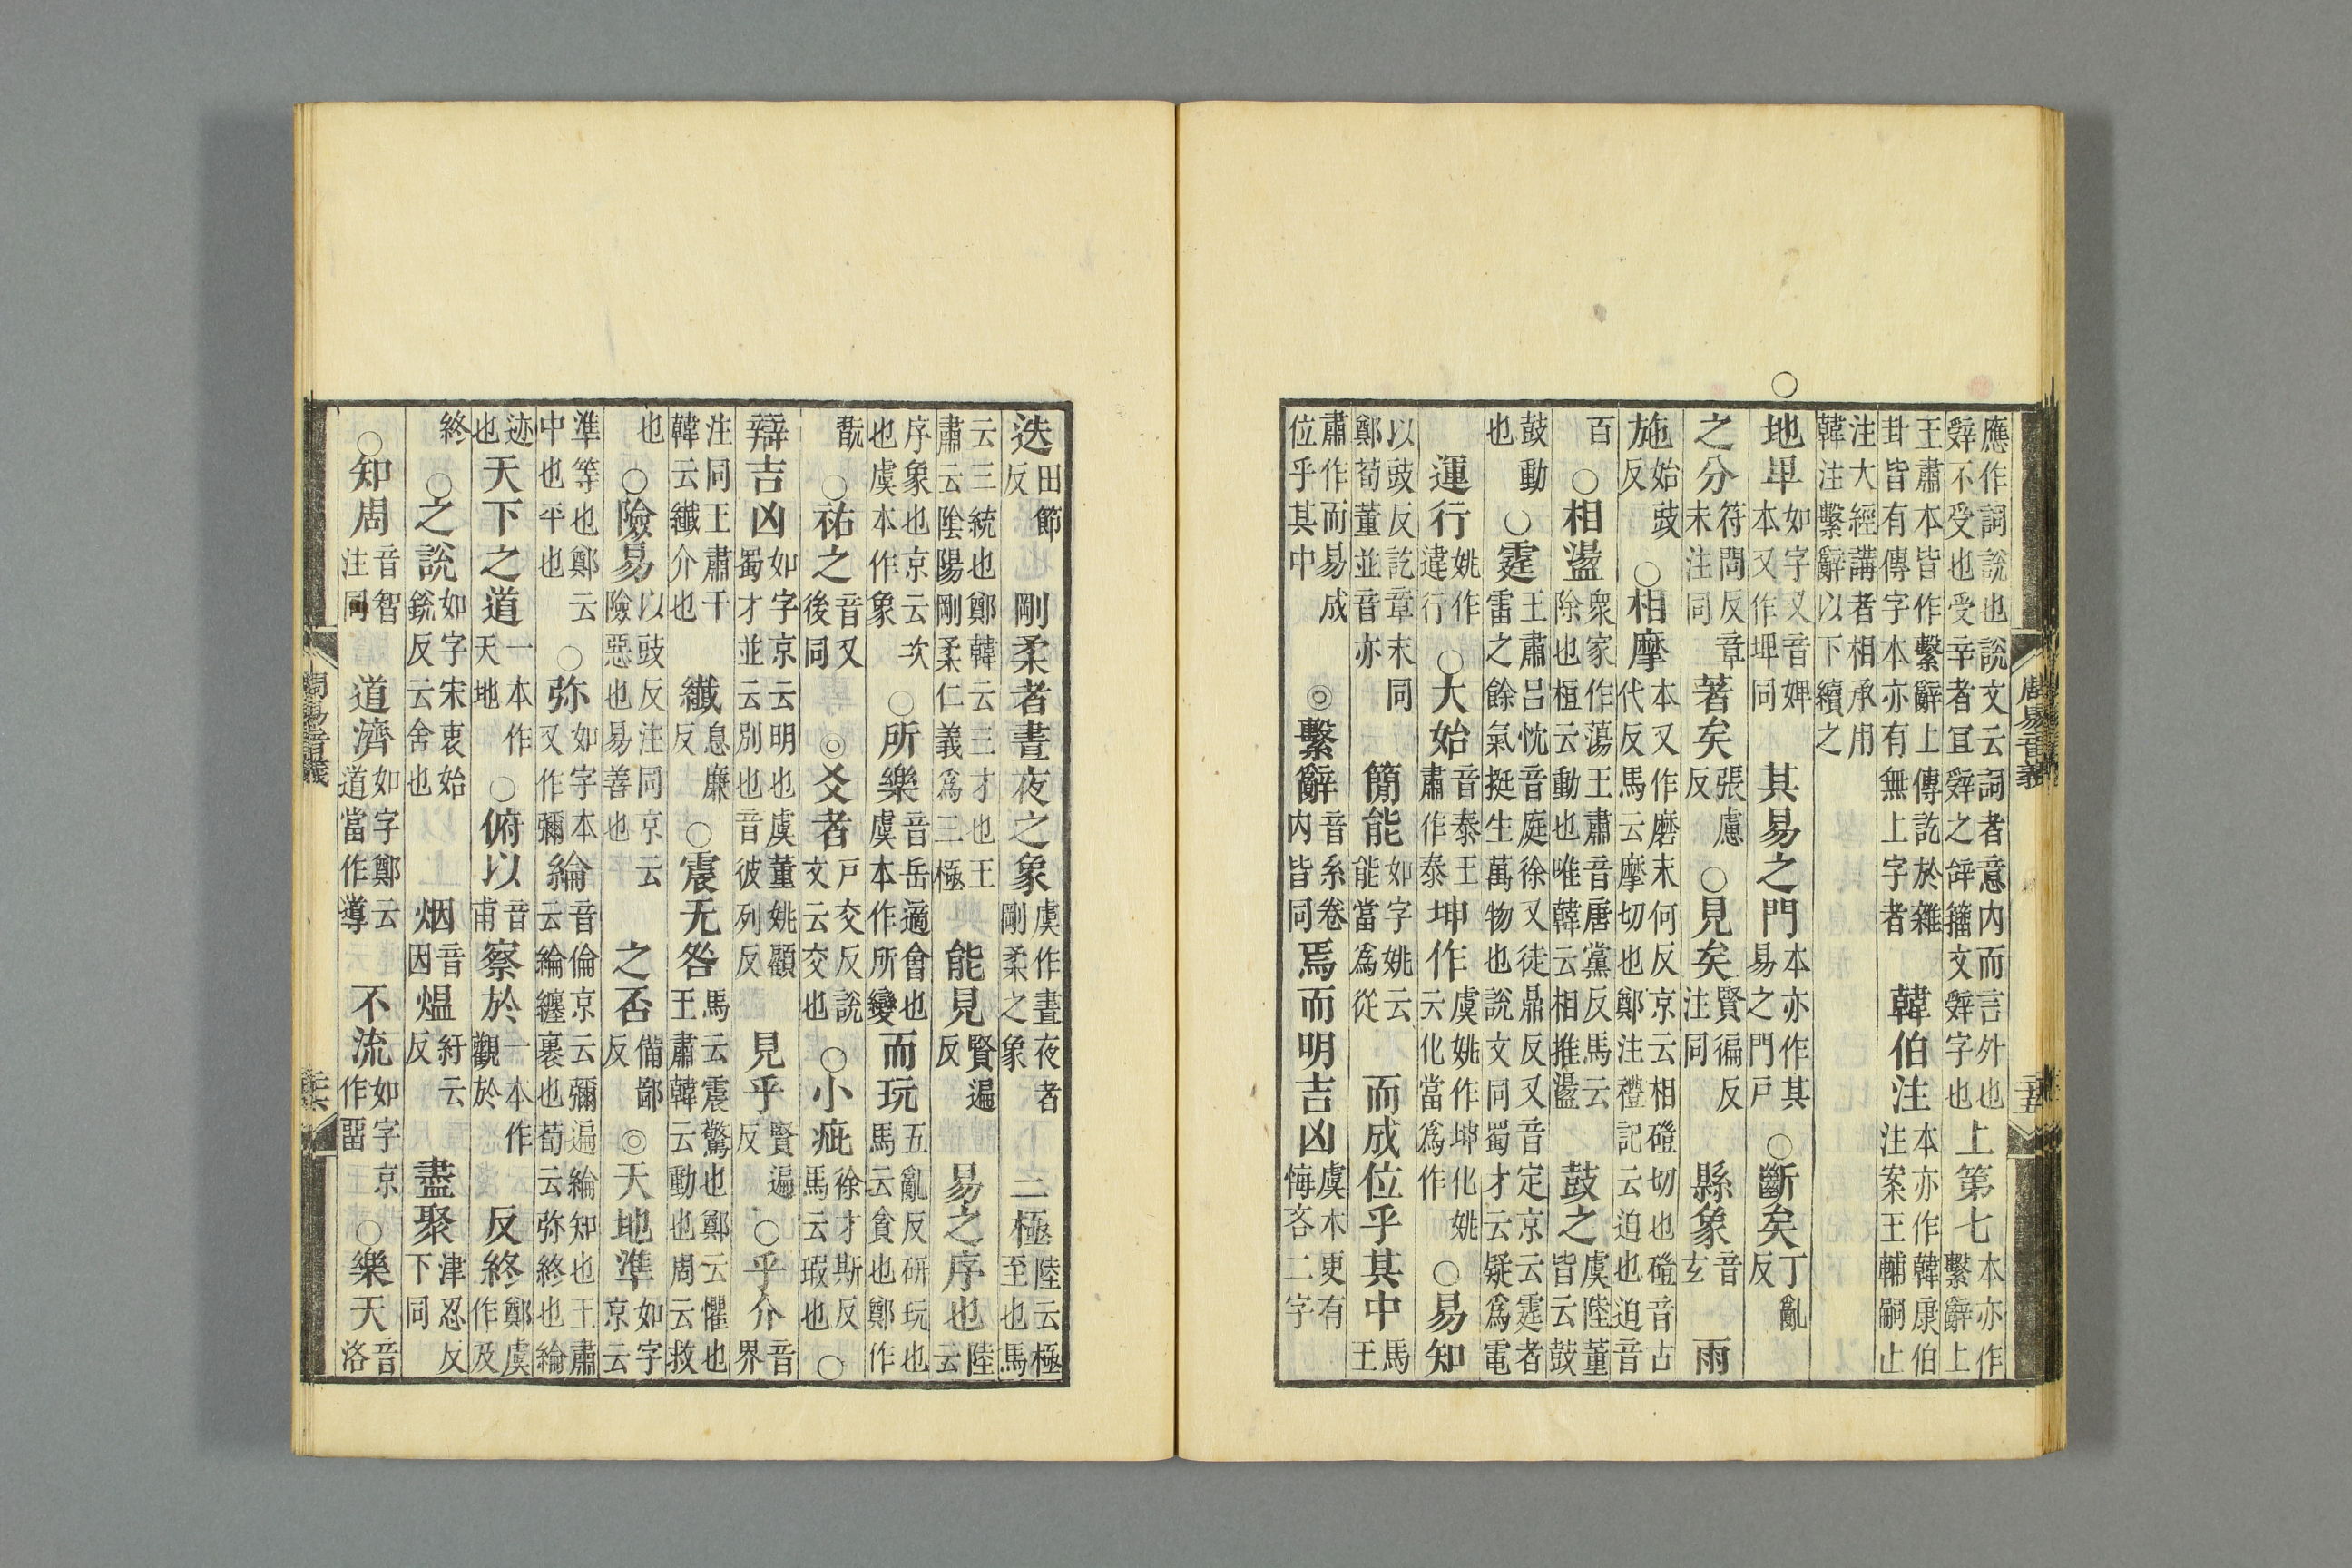 應作詞說也說文云詞者意内而言外也辤不受也受辛者宜辤之辝籒文辤字也上第七本亦作繫辭上
王肅本皆作繫辭上傳訖於雜卦皆有傳字本亦有無上字者韓伯注本亦作韓康伯注案王輔嗣止
注大經講者相承用韓注繫辭以下續之
○地卑如字又音婢本又作埤同其易之門本亦作其易之門門戶○斷矣丁亂反
之分符問反章末注同著矣張慮反○見矣賢徧反注同縣象音玄雨
施始豉反○相摩本又作磨末何反京云相磑切也磑音古代反馬云摩切也鄭注禮記云迫也迫音
百○相盪衆家作蕩王肅音唐黨反馬云除也桓云動也唯韓云相推盪鼓之虞陸董皆云鼓
鼓動也○霆王肅呂忱音庭徐又徒鼎反又音定京云霆者雷之餘氣挺生萬物也說文同蜀才云疑爲電
運行姚作違行○大始音泰王肅作泰坤作虞姚作坤化姚云化當爲作○易知
以豉反訖章末同鄭荀董並音亦簡能如字姚云能當爲從而成位乎其中馬王
肅作而易成位乎其中◎繫辭音系卷内皆同焉而明吉凶虞本更有悔吝二字
周易音義
二十五
迭田節反剛柔者晝夜之象虞作晝夜者剛柔之象三極陸云極至也馬
云三統也鄭韓云三才也王肅云陰陽剛柔仁義爲三極能見賢遍反易之序也陸云
序象也京云次也虞本作象○所樂音岳適會也虞本作所變而玩五亂反研玩也馬云貪也鄭作
翫○祐之音又後同◎爻者戶交反說文云交也○小疵徐才斯反馬云瑕也○
辯吉凶如字京云明也虞董姚顧蜀才並云別也音彼列反見乎賢遍反○乎介音界
注同王肅干韓云纖介也纎息廉反○震无咎馬云震驚也鄭云懼也王肅韓云動也周云救
也○險易以豉反注同京云險惡也易善也之否備鄙反◎天地準如字京云
準等也鄭云中也平也○弥如字本又作彌綸音倫京云彌遍綸知也王肅云綸纏裹也荀云弥終也綸
迹也天下之道一本作天地○俯以音甫察於一本作觀於反終鄭虞作及
終○之說如字宋衷始銳反云舍也烟音因熅紆云反盡聚津忍反下同
○知周音智注同道濟如字鄭云道當作導不流如字京作畱○樂天音洛
周易音義
二十六